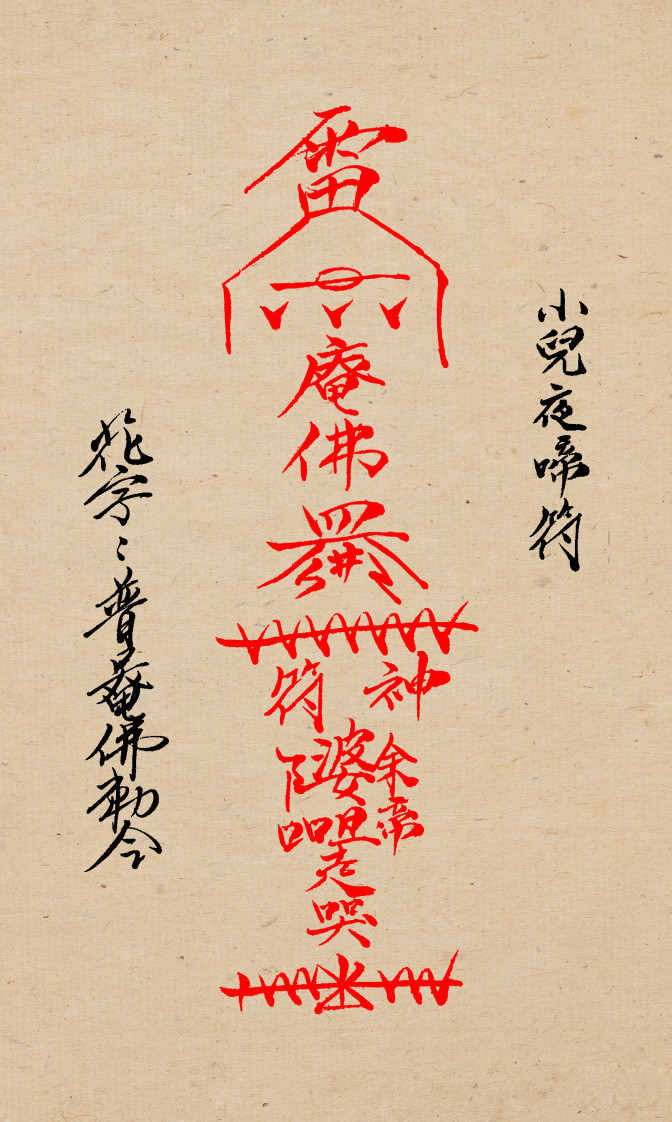 小兒夜啼符
雷
庵佛
神符
余帝
婆
走
哭
花字〻普庵佛勅令